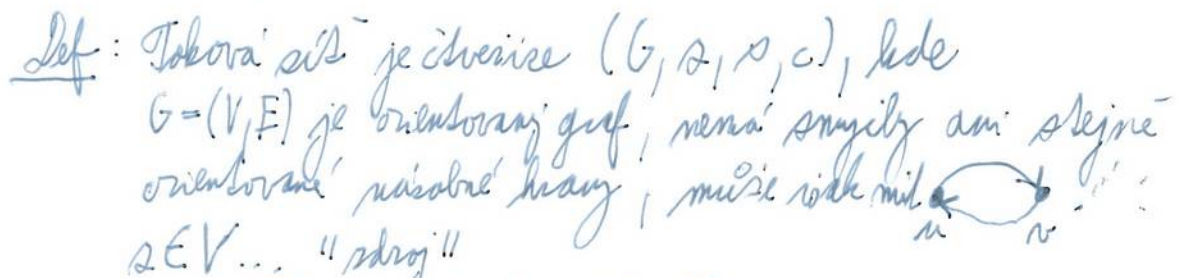 Def: Toková síť je čtveřice (G, z, s, c), kde
G=(V,E) je orientovaný graf, nemá smyčky ani stejně
orientované násobné hrany, může však mít u v
z∈V... "zdroj"